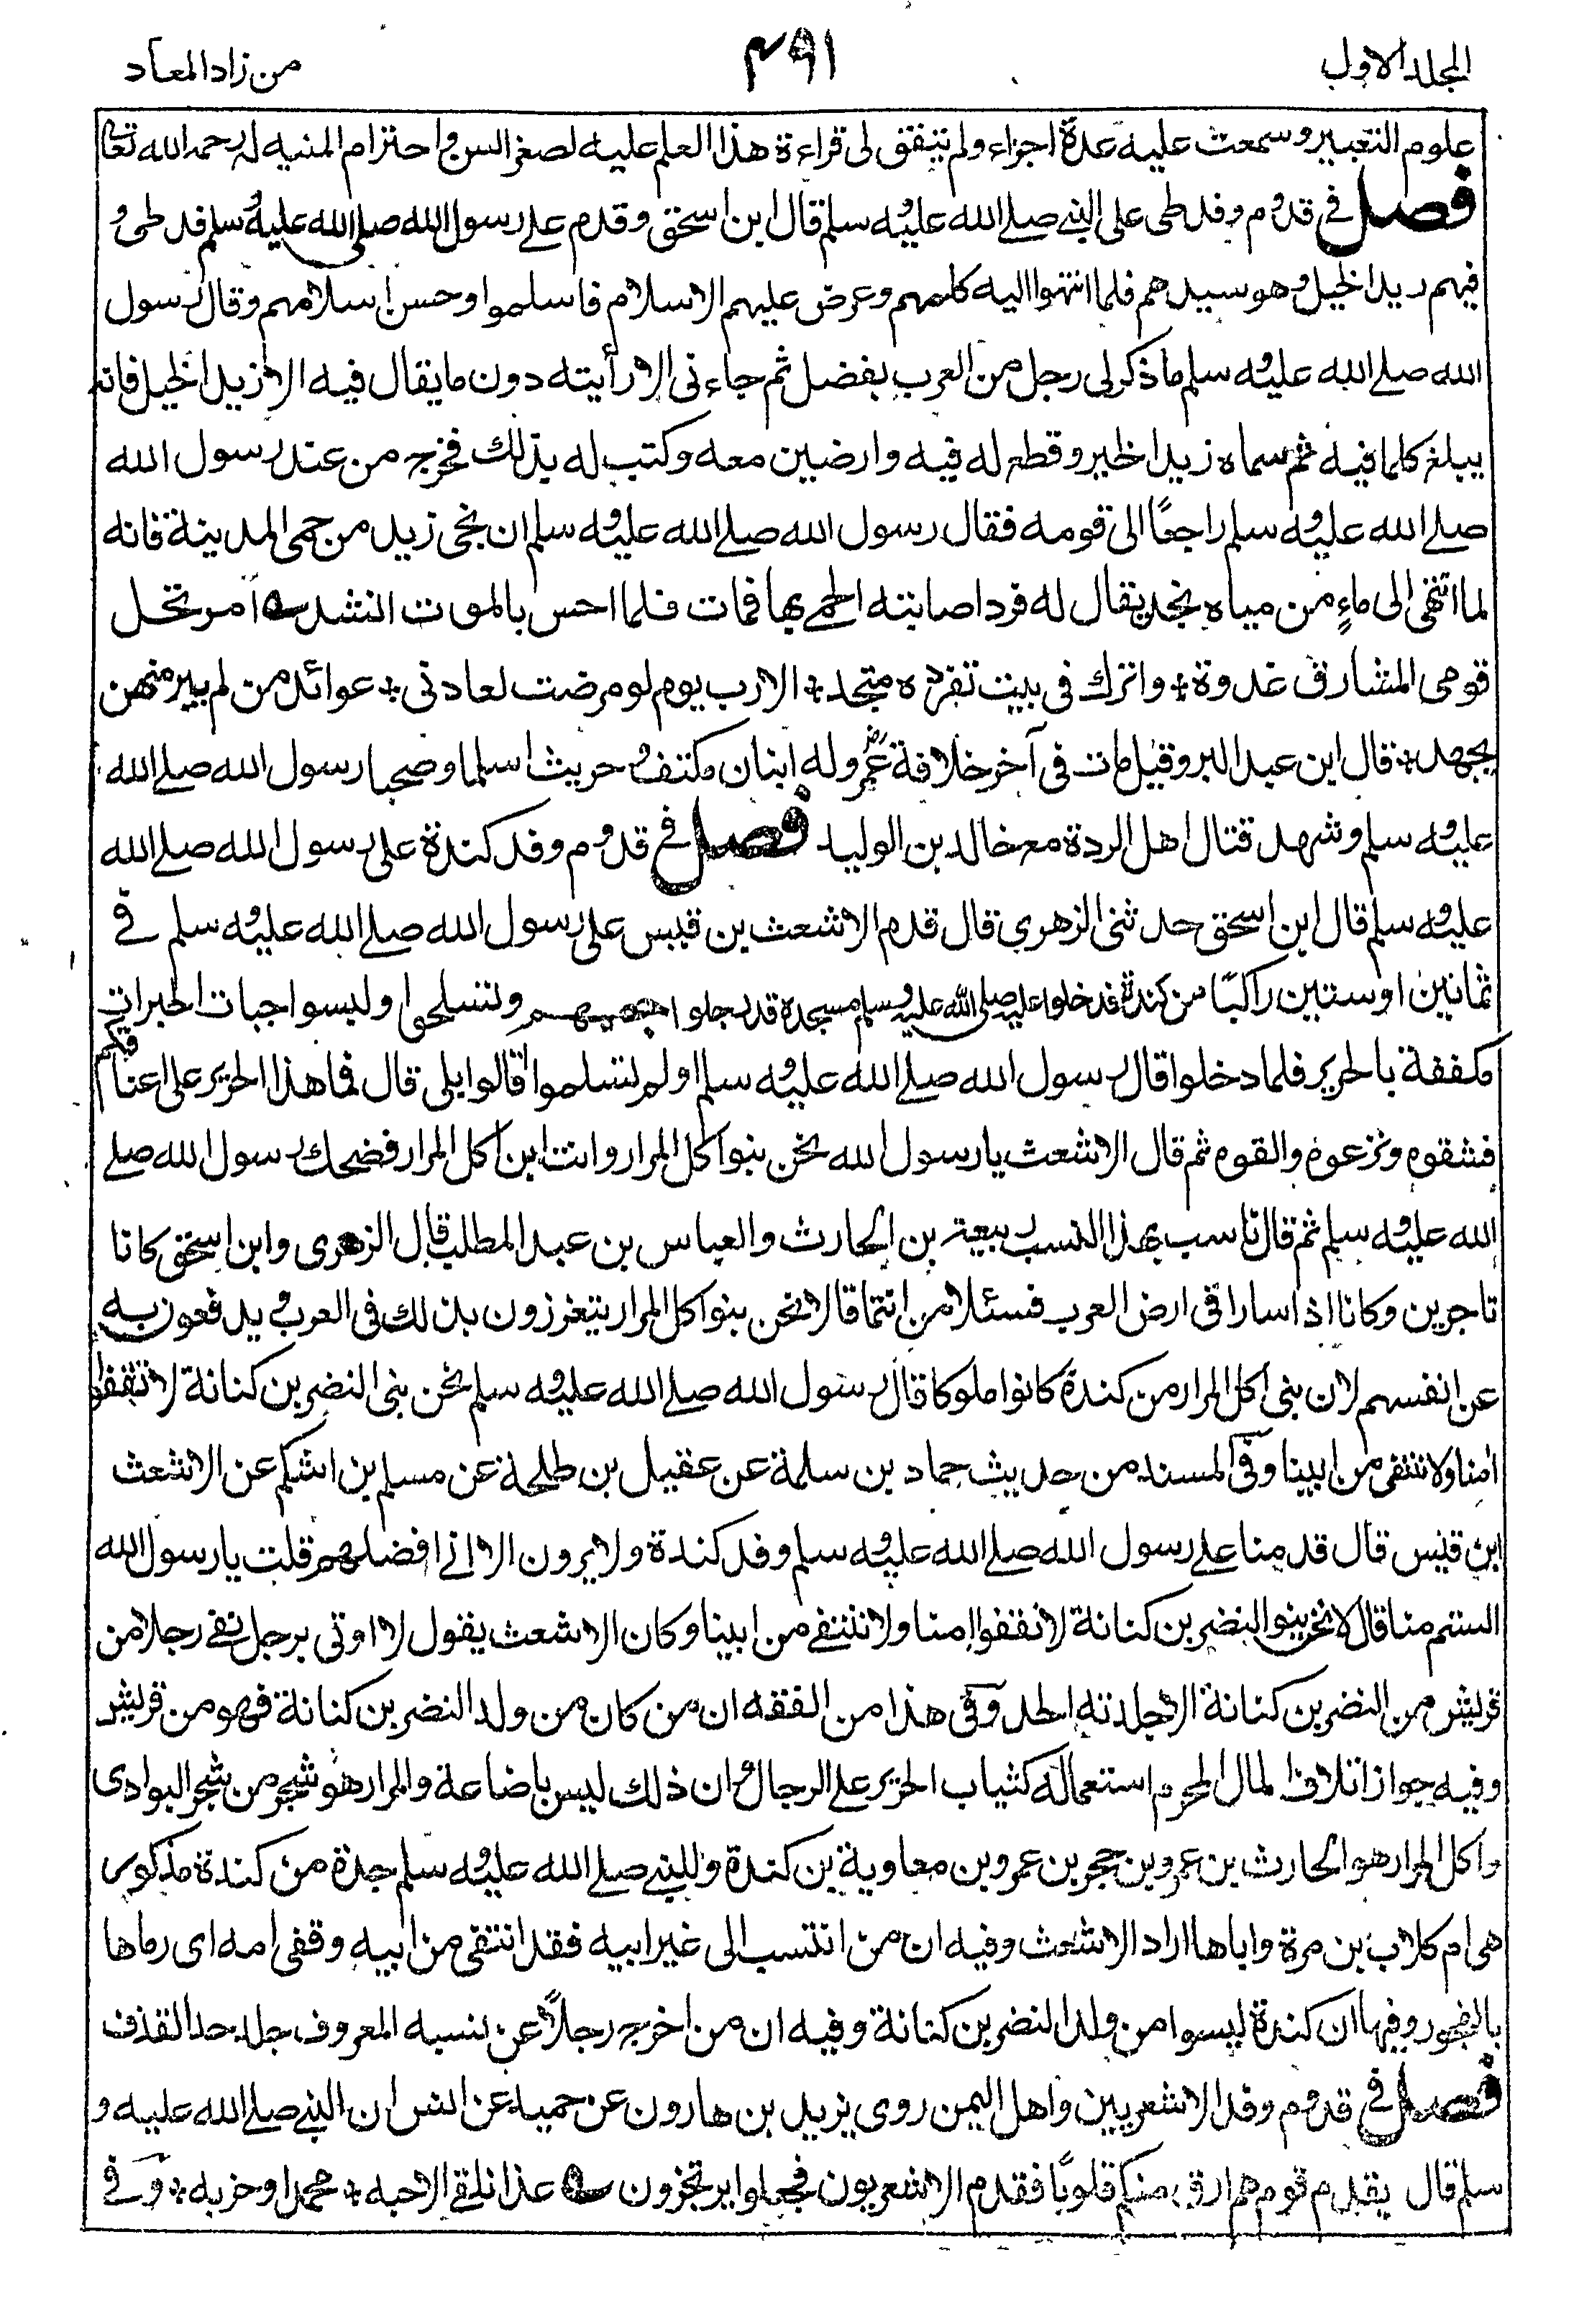 المجلد الاول
٤٩١
من زاد المعاد
علوم التعبير وسمعت عليه عدة اجزاء ولم يتفق لى قراءة هذا العلم عليه لصغر السن واحترام المنية له رحمه الله تعا
فصل فى قدوم وفد طى على النبى صلى الله عليه وسلم قال ابن اسحق وقدم على رسول الله صلى الله عليه وسلم وفد طى و
فيهم زيد الخيل وهو سيدهم فلما انتهوا اليه كلمهم وعرض عليهم الاسلام فاسلموا وحسن اسلامهم وقال رسول
الله صلى الله عليه وسلم ما ذكر لى رجل من العرب بفضل ثم جاءنى الا رأيته دون ما يقال فيه الا زيد الخيل فانه
يبلغ كلما فيه ثم سماه زيد الخير وقطع له فيه وارضين معه وكتب له بذلك فخرج من عند رسول الله
صلى الله عليه وسلم راجعًا الى قومه فقال رسول الله صلى الله عليه وسلم ان نجى زيد من حمى المدينة فانه
لما انتهى الى ماءٍ من مياه نجد يقال له قرد اصابته الحمى بها فمات فلما احس بالموت انشد أمرتحل
قومى المشارق غدوة + واترك فى بيت تفرده متجد + الا رب يوم لو مرضت لعادنى + عوائد من لم يبر منهن
يجهد + قال ابن عبد البر وقيل مات فى آخر خلافة عمر وله ابنان مكتف وحريث اسلما وصحبا رسول الله صلى الله
عليه وسلم وشهد قتال اهل الردة مع خالد بن الوليد فصل فى قدوم وفد كندة على رسول الله صلى الله
عليه وسلم قال ابن اسحق حدثنى الزهرى قال قدم الاشعث بن قيس على رسول الله صلى الله عليه وسلم فى
ثمانين او ستين راكبًا من كندة فدخلوا عليه صلى الله عليه وسلم مسجده قد رجلوا وتسلحوا ولبسوا جبات الحبرات
مكففة بالحرير فلما دخلوا قال رسول الله صلى الله عليه وسلم اولم تسلموا قالوا بلى قال فما هذا الحرير على اعناقكم
فشقوه ونزعوه والقوه ثم قال الاشعث يا رسول الله نحن بنو اكل المرار وانت ابن اكل المرار فضحك رسول الله صلى
الله عليه وسلم ثم قال ناسب بهذا النسب ربيعة بن الحارث والعباس بن عبد المطلب قال الزهرى وابن اسحق كانا
تاجرين وكانا اذا سارا فى ارض العرب فسئلا من انتما قالا نحن بنو اكل المرار يتعززون بذلك فى العرب ويدفعون به
عن انفسهم لان بنى اكل المرار من كندة كانوا ملوكا قال رسول الله صلى الله عليه وسلم نحن بنى النضر بن كنانة لا نقفوا
امنا ولا ننتفى من ابينا وفى المسند من حديث حماد بن سلمة عن عقيل بن طلحة عن مسلم بن اشكم عن الاشعث
ابن قيس قال قدمنا على رسول الله صلى الله عليه وسلم وفد كندة ولا يرون الا انى افضلهم قلت يا رسول الله
الستم منا قال لا نحن بنو النضر بن كنانة لا نقفوا امنا ولا ننتفى من ابينا وكان الاشعث يقول لا اوتى برجل نفى رجلا من
قريش من النضر بن كنانة الا جلدته الحد وفى هذا من الفقه ان من كان من ولد النضر بن كنانة فهو من قريش
وفيه جواز اتلاف المال المحرم استعماله كثياب الحرير على الرجال وان ذلك ليس باضاعة والمرار هو شجر من شجر البوادى
واكل المرار هو الحارث بن عمرو بن حجر بن عمرو بن معاوية بن كندة وللنبى صلى الله عليه وسلم جدة من كندة مذكورة
هى ام كلاب بن مرة واياها اراد الاشعث وفيه ان من انتسب الى غير ابيه فقد انتفى من ابيه وقفى امه اى رماها
بالفجور وفيها ان كندة ليسوا من ولد النضر بن كنانة وفيه ان من اخرج رجلاً عن نسبه المعروف جلد حد القذف
فصل فى قدوم وفد الاشعريين واهل اليمن روى يزيد بن هارون عن حميد عن انس ان النبى صلى الله عليه و
سلم قال يقدم قوم هم ارق منكم قلوبًا فقدم الاشعريون فجعلوا يرتجزون غدا نلقى الاحبه + محمدا وحزبه + وفى